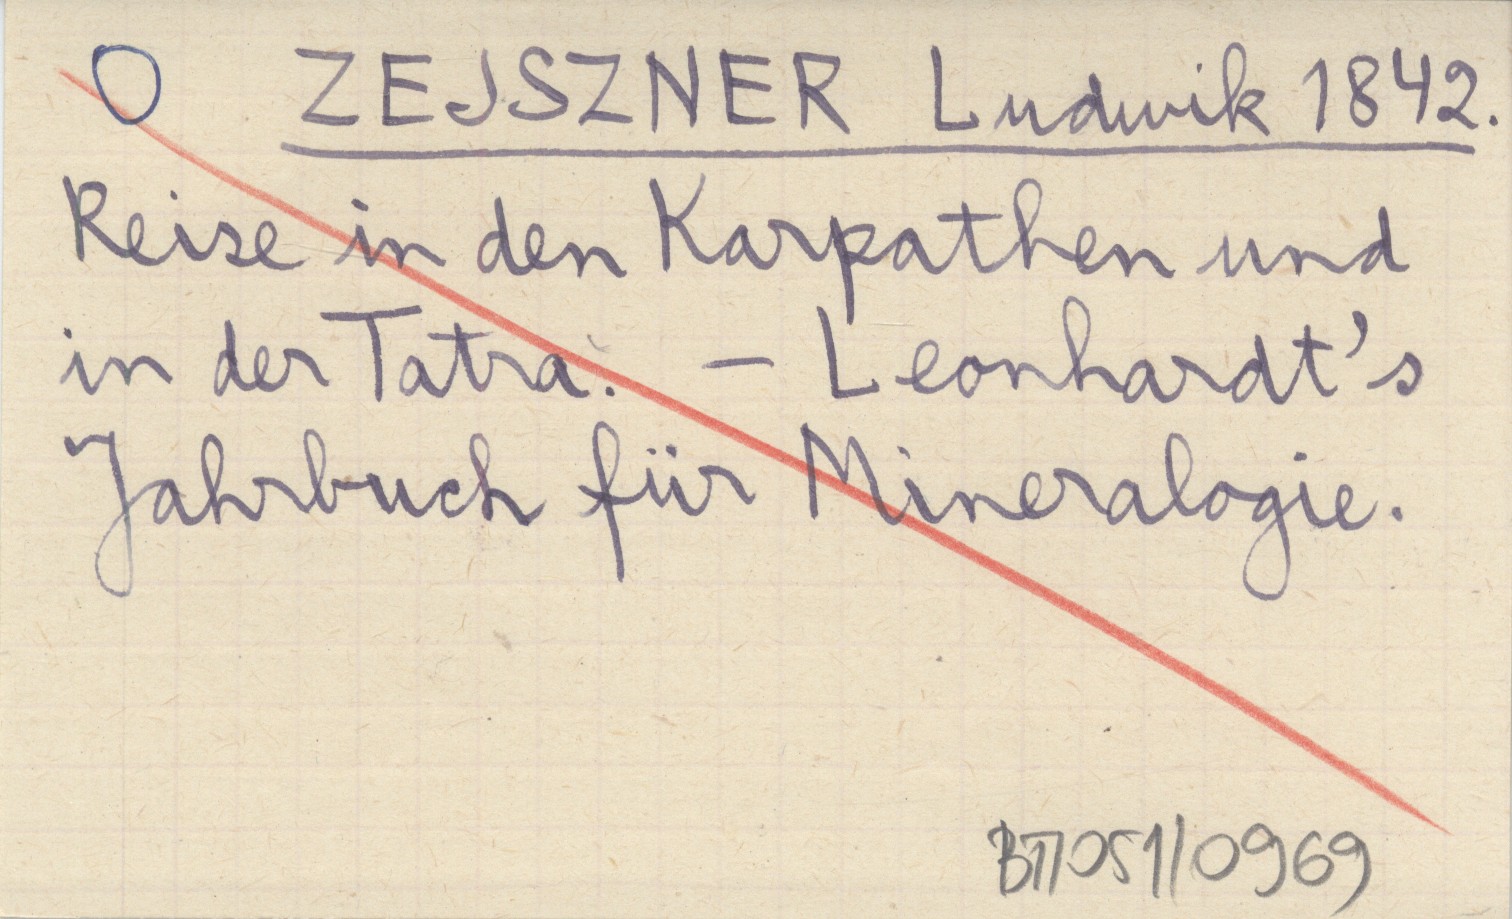 O ZEJSZNER Ludwik 1842.
Reise in den Karpathen und
in der Tatra. – Leonhardt's
Jahrbuch für Mineralogie.
BT/051/0969